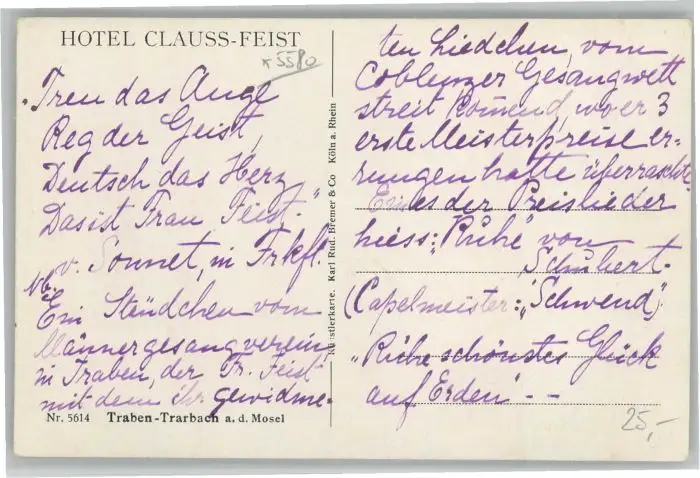 HOTEL CLAUSS-FEIST
*5580
"Treu das Auge
Reg der Geist,
Deutsch das Herz,
Das ist Frau Feist."
v. Sonnet, in Frkft.
Nb:
Ein Ständchen vom
Männergesangverein
in Traben, der Fr. Feist
mit dem ihr gewidme-
Nr. 5614 Traben-Trarbach a. d. Mosel
Künstlerkarte. Karl Rud. Bremer & Co Köln a. Rhein
ten Liedchen, vom
Coblenzer Gesangwett
streit komend, wo er 3
erste Meisterpreise er-
rungen hatte überraschte
Eines der Preislieder
hiess: "Ruhe" von
Schubert.
(Capelmeister: "Schwend")
"Ruhe schönstes Glück
auf Erden" - -
25,-